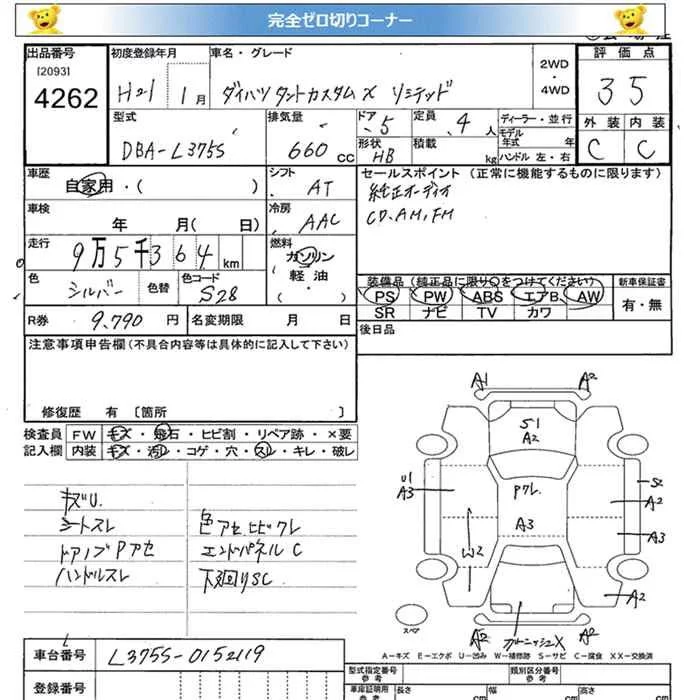 完全ゼロ切りコーナー
出品番号 初度登録年月 車名・グレード 2WD・4WD 評価点
[2093]
4262 H21 1月 ダイハツ タントカスタム X リミテッド 35
型式 排気量 ドア 5 定員 4人 ディーラー・並行 外装 内装
DBA-L375S 660cc 形状 HB 積載 kg モデル年式 年 ハンドル 左・右 C C
車歴 自家用・( ) シフト AT セールスポイント(正常に機能するものに限ります)
純正オーディオ
車検 年 月(日) 冷房 AAC CD、AM、FM
走行 9万5千364km 燃料 ガソリン
軽油
( ・ )
色 シルバー 色替 色コード S28
装備品(純正品に限り○をつけてください) 新車保証書
PS PW ABS エアB. AW 有・無
SR ナビ TV カワ
R券 9,790円 名変期限 月 日 後日品
注意事項申告欄(不具合内容等は具体的に記入して下さい)
修復歴 有 [箇所 ]
検査員 FW キズ・飛石・ヒビ割・リペア跡・×要
記入欄 内装 キズ・汚レ・コゲ・穴・スレ・キレ・破レ
キズU.
シートスレ 色アセ ヒビワレ
ドアノブPアセ エンドパネルC
ハンドルスレ 下廻りSC
A1 A2
S1
A2
U1
A3
P7L.
S2
A2
A3
A3
W2
A2
スペア
A2 ガーニッシュX A2
A-キズ E-エクボ U-凹み W-補修跡 S-サビ C-腐食 XX-交換済
車台番号 L375S-0152119
型式指定番号 参考 類別区分番号 参考
登録番号 車庫証明用 参考 長さ cm 幅 cm 高さ cm